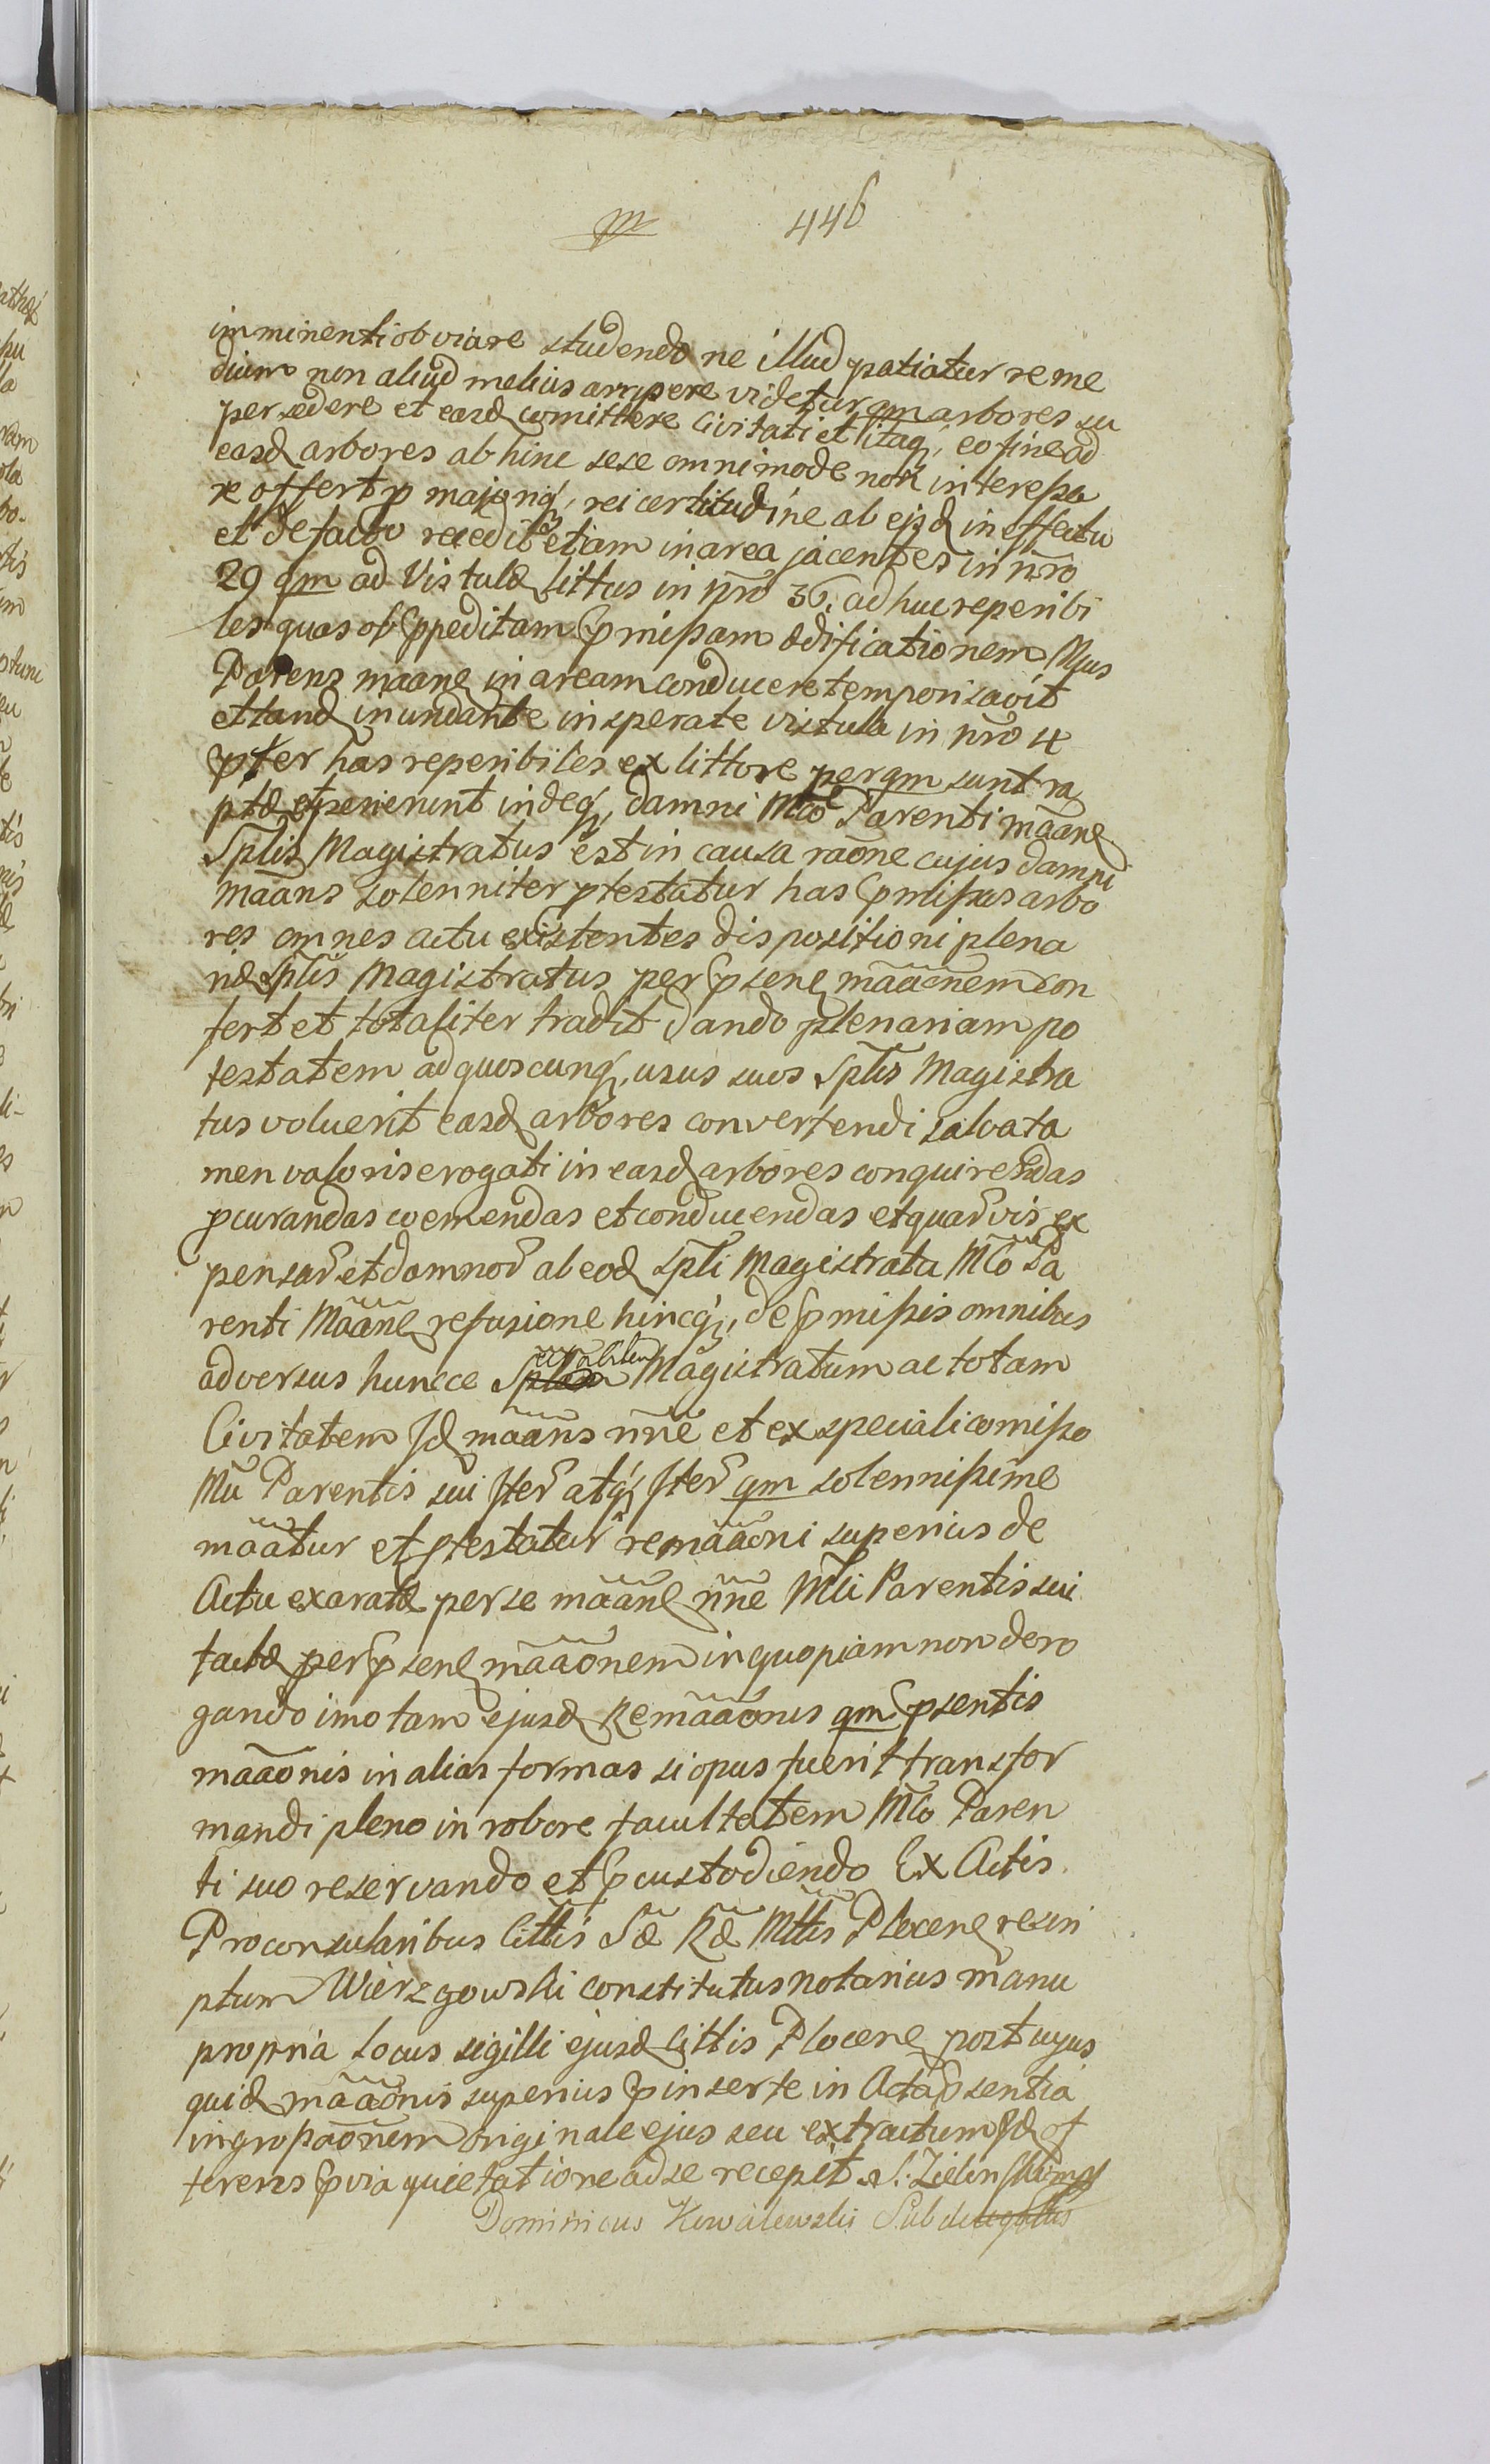 m 446
imminenti obviare studendo ne illud patiatur reme
dium non aliud melius arripere videtur qm arbores su
persedere et easd comittere Civitati et itaq, eo fine ad
easd arbores ab hinc sese omnimode non interessa
re offert p majoriq, rei certitudine ab ejsd in effectu
et de facto recedit etiam in area jacentes in nro
29 qm ad Vistulæ littus in nro 36. adhuc reperibi
les quas ob Expeditam pmissam ædificationem Mgus
Parens maane in aream conducere temporisavit
et tand inundante insperate vistula in nro 4
pter has reperibiles ex littore per qm sunt ra
ptæ et perierunt indeq, damni Mco Parenti mãane
Splis Magistratus est in causa raõne cujus damni
maãns solenniter ptestatur has pmissas arbo
res omnes actu existentes dispositioni plena
riæ Splis Magistratus per psene mãaõnem con
fert et totaliter tradit dando plenariam po
testatem ad quoscunq, usus suos Splis Magistra
tus voluerit easd arbores convertendi salva ta
men valoris erogati in easd arbores conquirendas
pcurandas coemendas et conducendas et quarvis ex
pensar et damnor ab eod Spli Magistratu Mco Pa
renti Mãane refusione hincq, de pmissis omnibus
adversus huncce Magistratum ac totam
Civitatem Jd maãns nñe et ex speciali comisso
Mci Parentis sui Iter atq, Iter qm solennissime
mãatur et ptestatur remãaõni superius de
Actu exaratæ per se mãane nñe Mci Parentis sui
factæ per psene mãaõnem in quopiam non dero
gando imo tam ejusd Remãaõnis qm psentis
mãaõnis in alias formas si opus fuerit transfor
mandi pleno in robore facultatem Mco Paren
ti suo reservando et pcustodiendo Ex Actis
Proconsularibus Cittis Sæ Ræ Mttis Plocene rescri
ptum Wierzgowski constitutus notarius manu
propria Locus sigilli ejusd Cittis Plocene post cujus
quid mãaõnis superius pinserte in Acta psentia
ingrossaõnem originale ejus seu extractum Jd of
ferens pvia quietatione ad se recepit S. Zielinski mp
Dominicus Kowalewski Subdelegatus